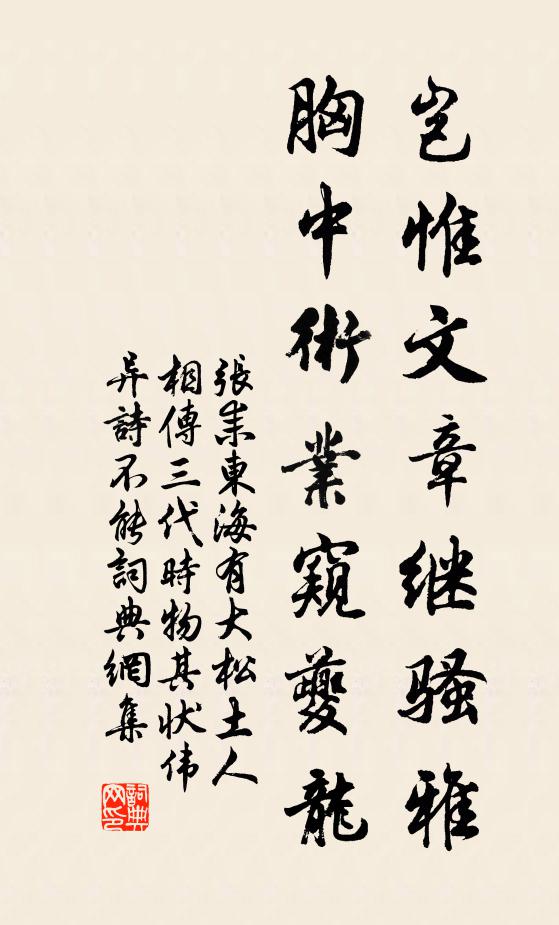 岂惟文章继骚雅
胸中術業窺夔龍
張耒東海有大松土人
相傳三代時物其狀伟
异詩不能詞典網集
詞典网印